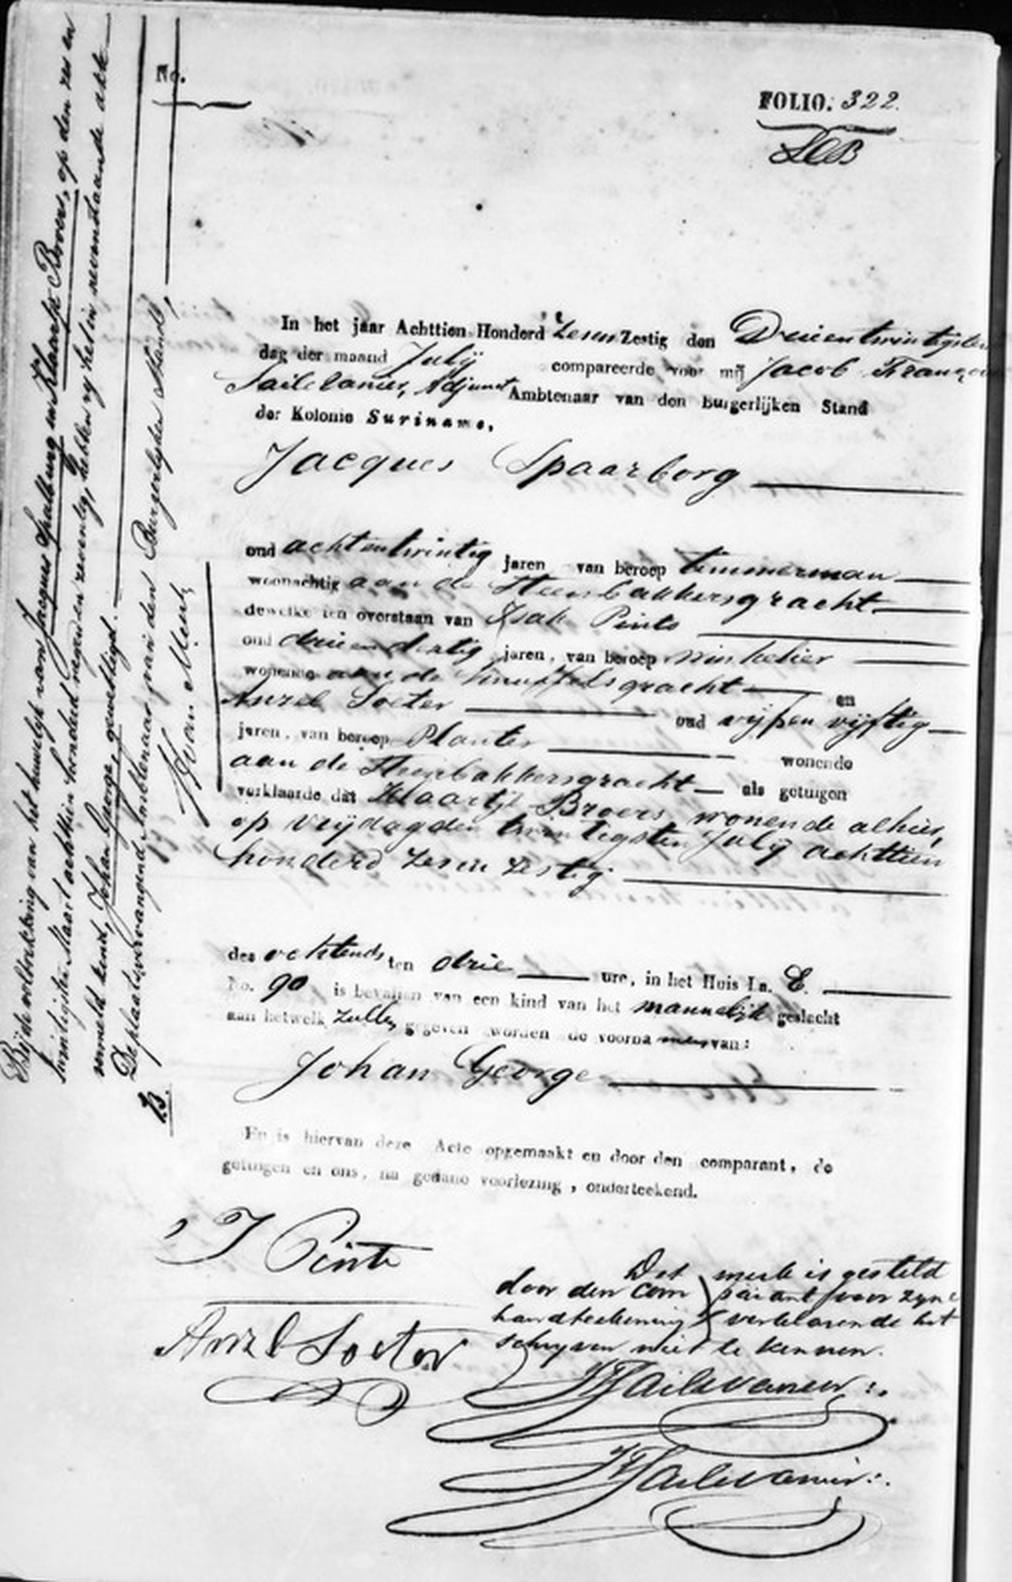 No.
FOLIO. 322.
In het jaar Achttien Honderd Zes en Zestig den Drieentwintigsten
dag der maand July compareerde voor mij Jacob François
Adjunct Ambtenaar van den Burgerlijken Stand
der Kolonie Suriname,
Jacques Spaarborg
oud achtentwintig jaren van beroep timmerman
woonachtig aan de Steenbakkersgracht
dewelke ten overstaan van Isak Pinto
oud drieendertig jaren, van beroep winkelier
wonende aan de Knuffelsgracht en
Anzel Soeter oud vijfen vijftig
jaren, van beroep Planter wonende
aan de Steenbakkersgracht als getuigen
verklaarde dat Klaartje Broers wonende alhier,
op Vrijdag den twintigsten July achttien
honderd zes en zestig
des ochtends ten drie ure, in het Huis La. E.
No. 90 is bevallen van een kind van het mannelijk geslacht
aan hetwelk zullen gegeven worden de voornamen van:
Johan George
En is hiervan deze Acte opgemaakt en door den comparant, de
getuigen en ons, na gedane voorlezing, onderteekend.
J Pinto
Anzel Soeter
Dit merk is gesteld
door den comparant voor zyne
handteekening verklarende het
schryven niet te kennen.
Bij de voltrekking van het huwelijk van Jacques Spalburg en Klaartje Broers, op den zes en
twintigsten Maart achttien honderd negen en zeventig, hebben zij het in nevenstaande akte
vermeld kind, Johan George, gewettigd.
De plaatsvervangend Ambtenaar van den Burgerlijken Stand,